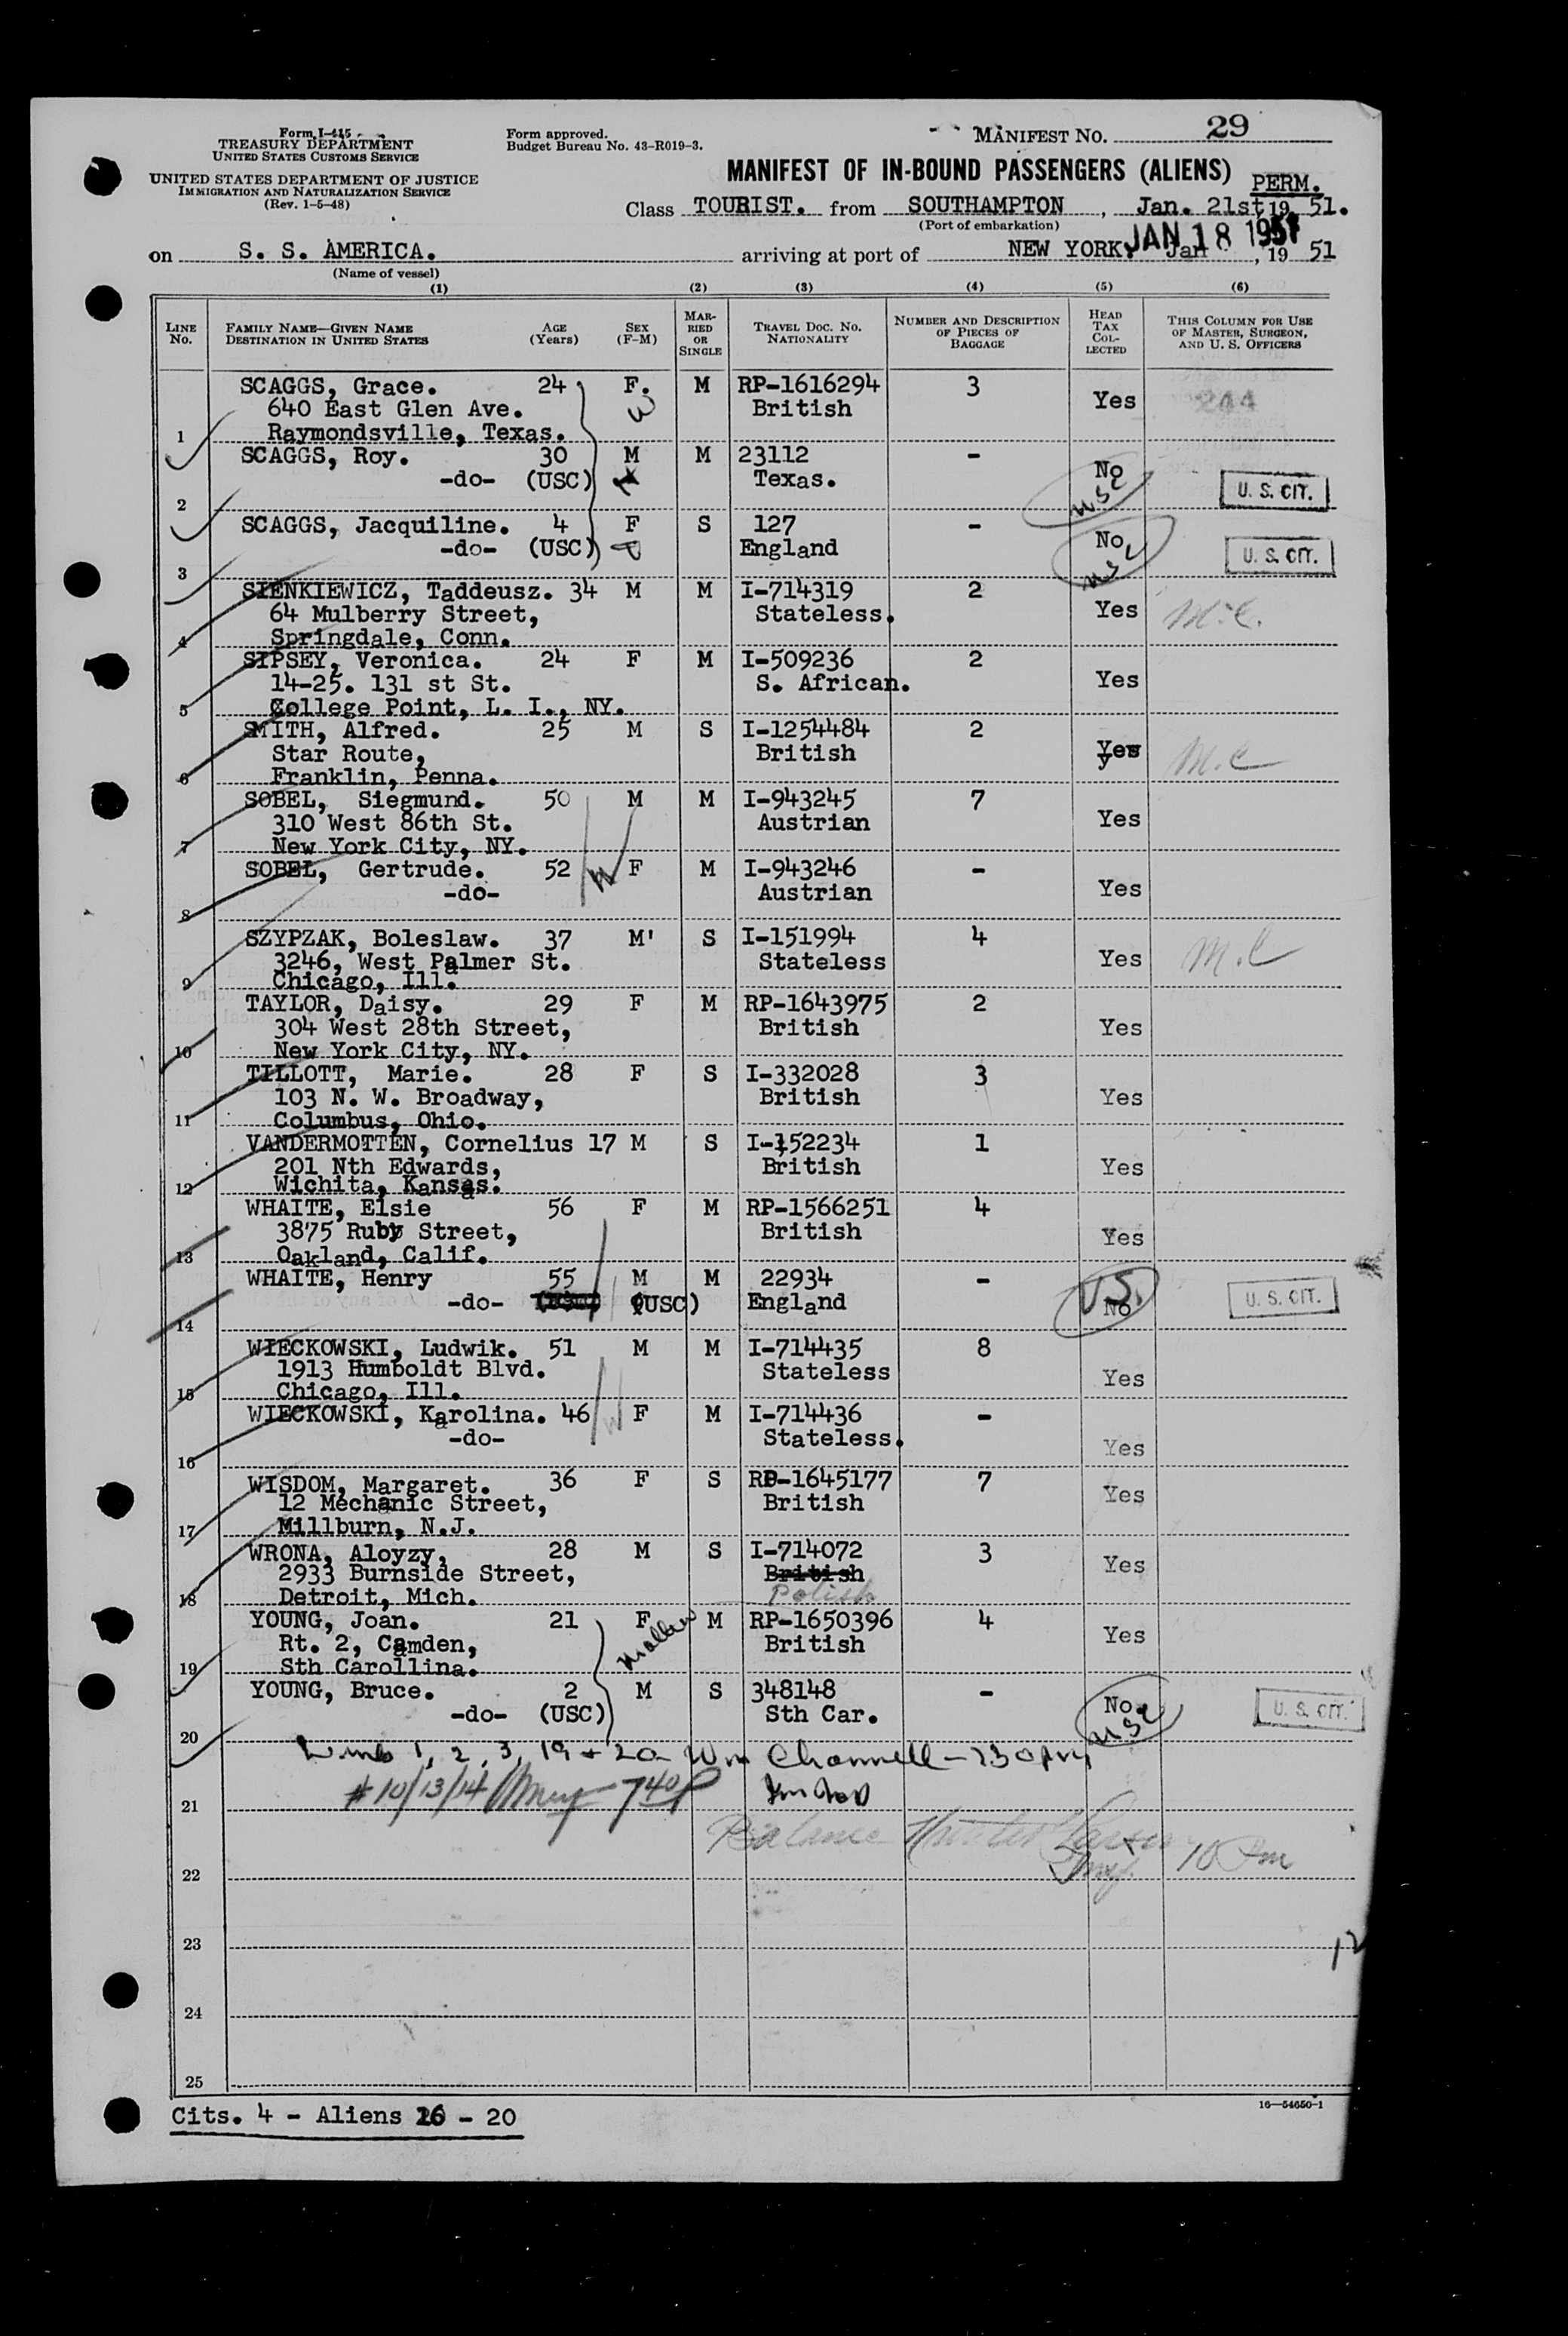 Form I-415
TREASURY DEPARTMENT
UNITED STATES CUSTOMS SERVICE
UNITED STATES DEPARTMENT OF JUSTICE
IMMIGRATION AND NATURALIZATION SERVICE
(Rev. 1-5-48)
Form approved.
Budget Bureau No. 43-R019-3.
MANIFEST NO. 29
MANIFEST OF IN-BOUND PASSENGERS (ALIENS)
PERM.
Class TOURIST. from SOUTHAMPTON, Jan. 21st, 19 51.
(Port of embarkation)
on S. S. AMERICA. arriving at port of NEW YORK. Jan , 19 51
JAN 18 1951
(Name of vessel)
(1) (2) (3) (4) (5) (6)
LINE No. FAMILY NAME—GIVEN NAME DESTINATION IN UNITED STATES AGE (Years) SEX (F-M) MARRIED OR SINGLE TRAVEL DOC. NO. NATIONALITY NUMBER AND DESCRIPTION OF PIECES OF BAGGAGE HEAD TAX COLLECTED THIS COLUMN FOR USE OF MASTER, SURGEON, AND U. S. OFFICERS
SCAGGS, Grace. 24 F. M RP-1616294 3 Yes 244
640 East Glen Ave. W British
1 Raymondsville, Texas.
SCAGGS, Roy. 30 M M 23112 - No
-do- (USC) Texas. USC U. S. CIT.
2
SCAGGS, Jacquiline. 4 F S 127 - No
-do- (USC) England USC U. S. CIT.
3
SIENKIEWICZ, Taddeusz. 34 M M I-714319 2 Yes M.C.
64 Mulberry Street, Stateless.
4 Springdale, Conn.
SIPSEY, Veronica. 24 F M I-509236 2 Yes
14-25. 131 st St. S. African.
5 College Point, L. I., NY.
SMITH, Alfred. 25 M S I-1254484 2 Yes M.C
Star Route, British
6 Franklin, Penna.
SOBEL, Siegmund. 50 M M I-943245 7 Yes
310 West 86th St. Austrian
7 New York City, NY.
SOBEL, Gertrude. 52 W F M I-943246 - Yes
-do- Austrian
8
SZYPZAK, Boleslaw. 37 M' S I-151994 4 Yes M.C
3246, West Palmer St. Stateless
9 Chicago, Ill.
TAYLOR, Daisy. 29 F M RP-1643975 2 Yes
304 West 28th Street, British
10 New York City, NY.
TILLOTT, Marie. 28 F S I-332028 3 Yes
103 N. W. Broadway, British
11 Columbus, Ohio.
VANDERMOTTEN, Cornelius 17 M S I-152234 1 Yes
201 Nth Edwards, British
12 Wichita, Kansas.
WHAITE, Elsie 56 F M RP-1566251 4 Yes
3875 Ruby Street, British
13 Oakland, Calif.
WHAITE, Henry 55 M M 22934 - No
-do- (USC) England US. U. S. CIT.
14
WIECKOWSKI, Ludwik. 51 M M I-714435 8 Yes
1913 Humboldt Blvd. Stateless
15 Chicago, Ill.
WIECKOWSKI, Karolina. 46 W F M I-714436 - Yes
-do- Stateless.
16
WISDOM, Margaret. 36 F S RP-1645177 7 Yes
12 Mechanic Street, British
17 Millburn, N.J.
WRONA, Aloyzy, 28 M S I-714072 3 Yes
2933 Burnside Street, British
18 Detroit, Mich. Polish
YOUNG, Joan. 21 F M RP-1650396 4 Yes
Rt. 2, Camden, Mother British
19 Sth Carollina.
YOUNG, Bruce. 2 M S 348148 - No
-do- (USC) Sth Car. USC U. S. CIT.
20
1, 2, 3, 19 + 20 Wm Channell - 730 PM
# 10/13/14 740 P
21
Balance 10 Pm
22
23
12
24
25
Cits. 4 - Aliens 16 - 20
16—54650-1